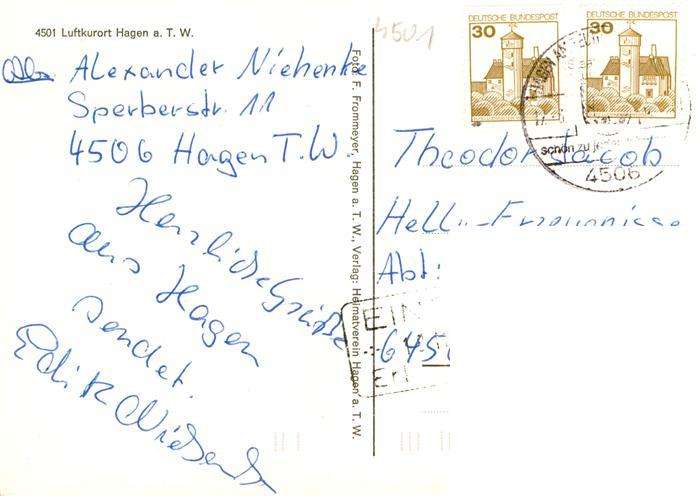 4501 Luftkurort Hagen a. T. W.
Alexander Niehenke
Sperberstr. 11
4506 Hagen T.W.
Herzliche Grüße
aus Hagen
sendet
Foto: F. Frommeyer, Hagen a. T. W., Verlag: Heimatverein Hagen a. T. W.
4501
DEUTSCHE BUNDESPOST
30
DEUTSCHE BUNDESPOST
30
schön zu
4506
Theodor Jacob
Abt:
EIN
EN